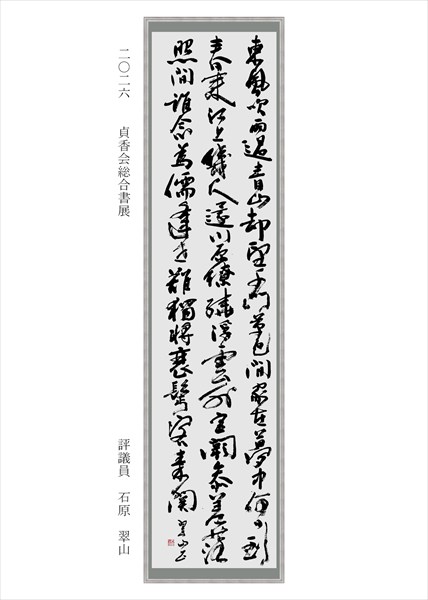 東風吹雨過青山却望千門草色間家在夢中何日到
春来江上幾人還川原繚繞浮雲外宮闕参差落
照間誰念為儒逢世難獨將衰鬢客秦関 翠山書
二〇二六　貞香会総合書展
評議員　石原　翠山